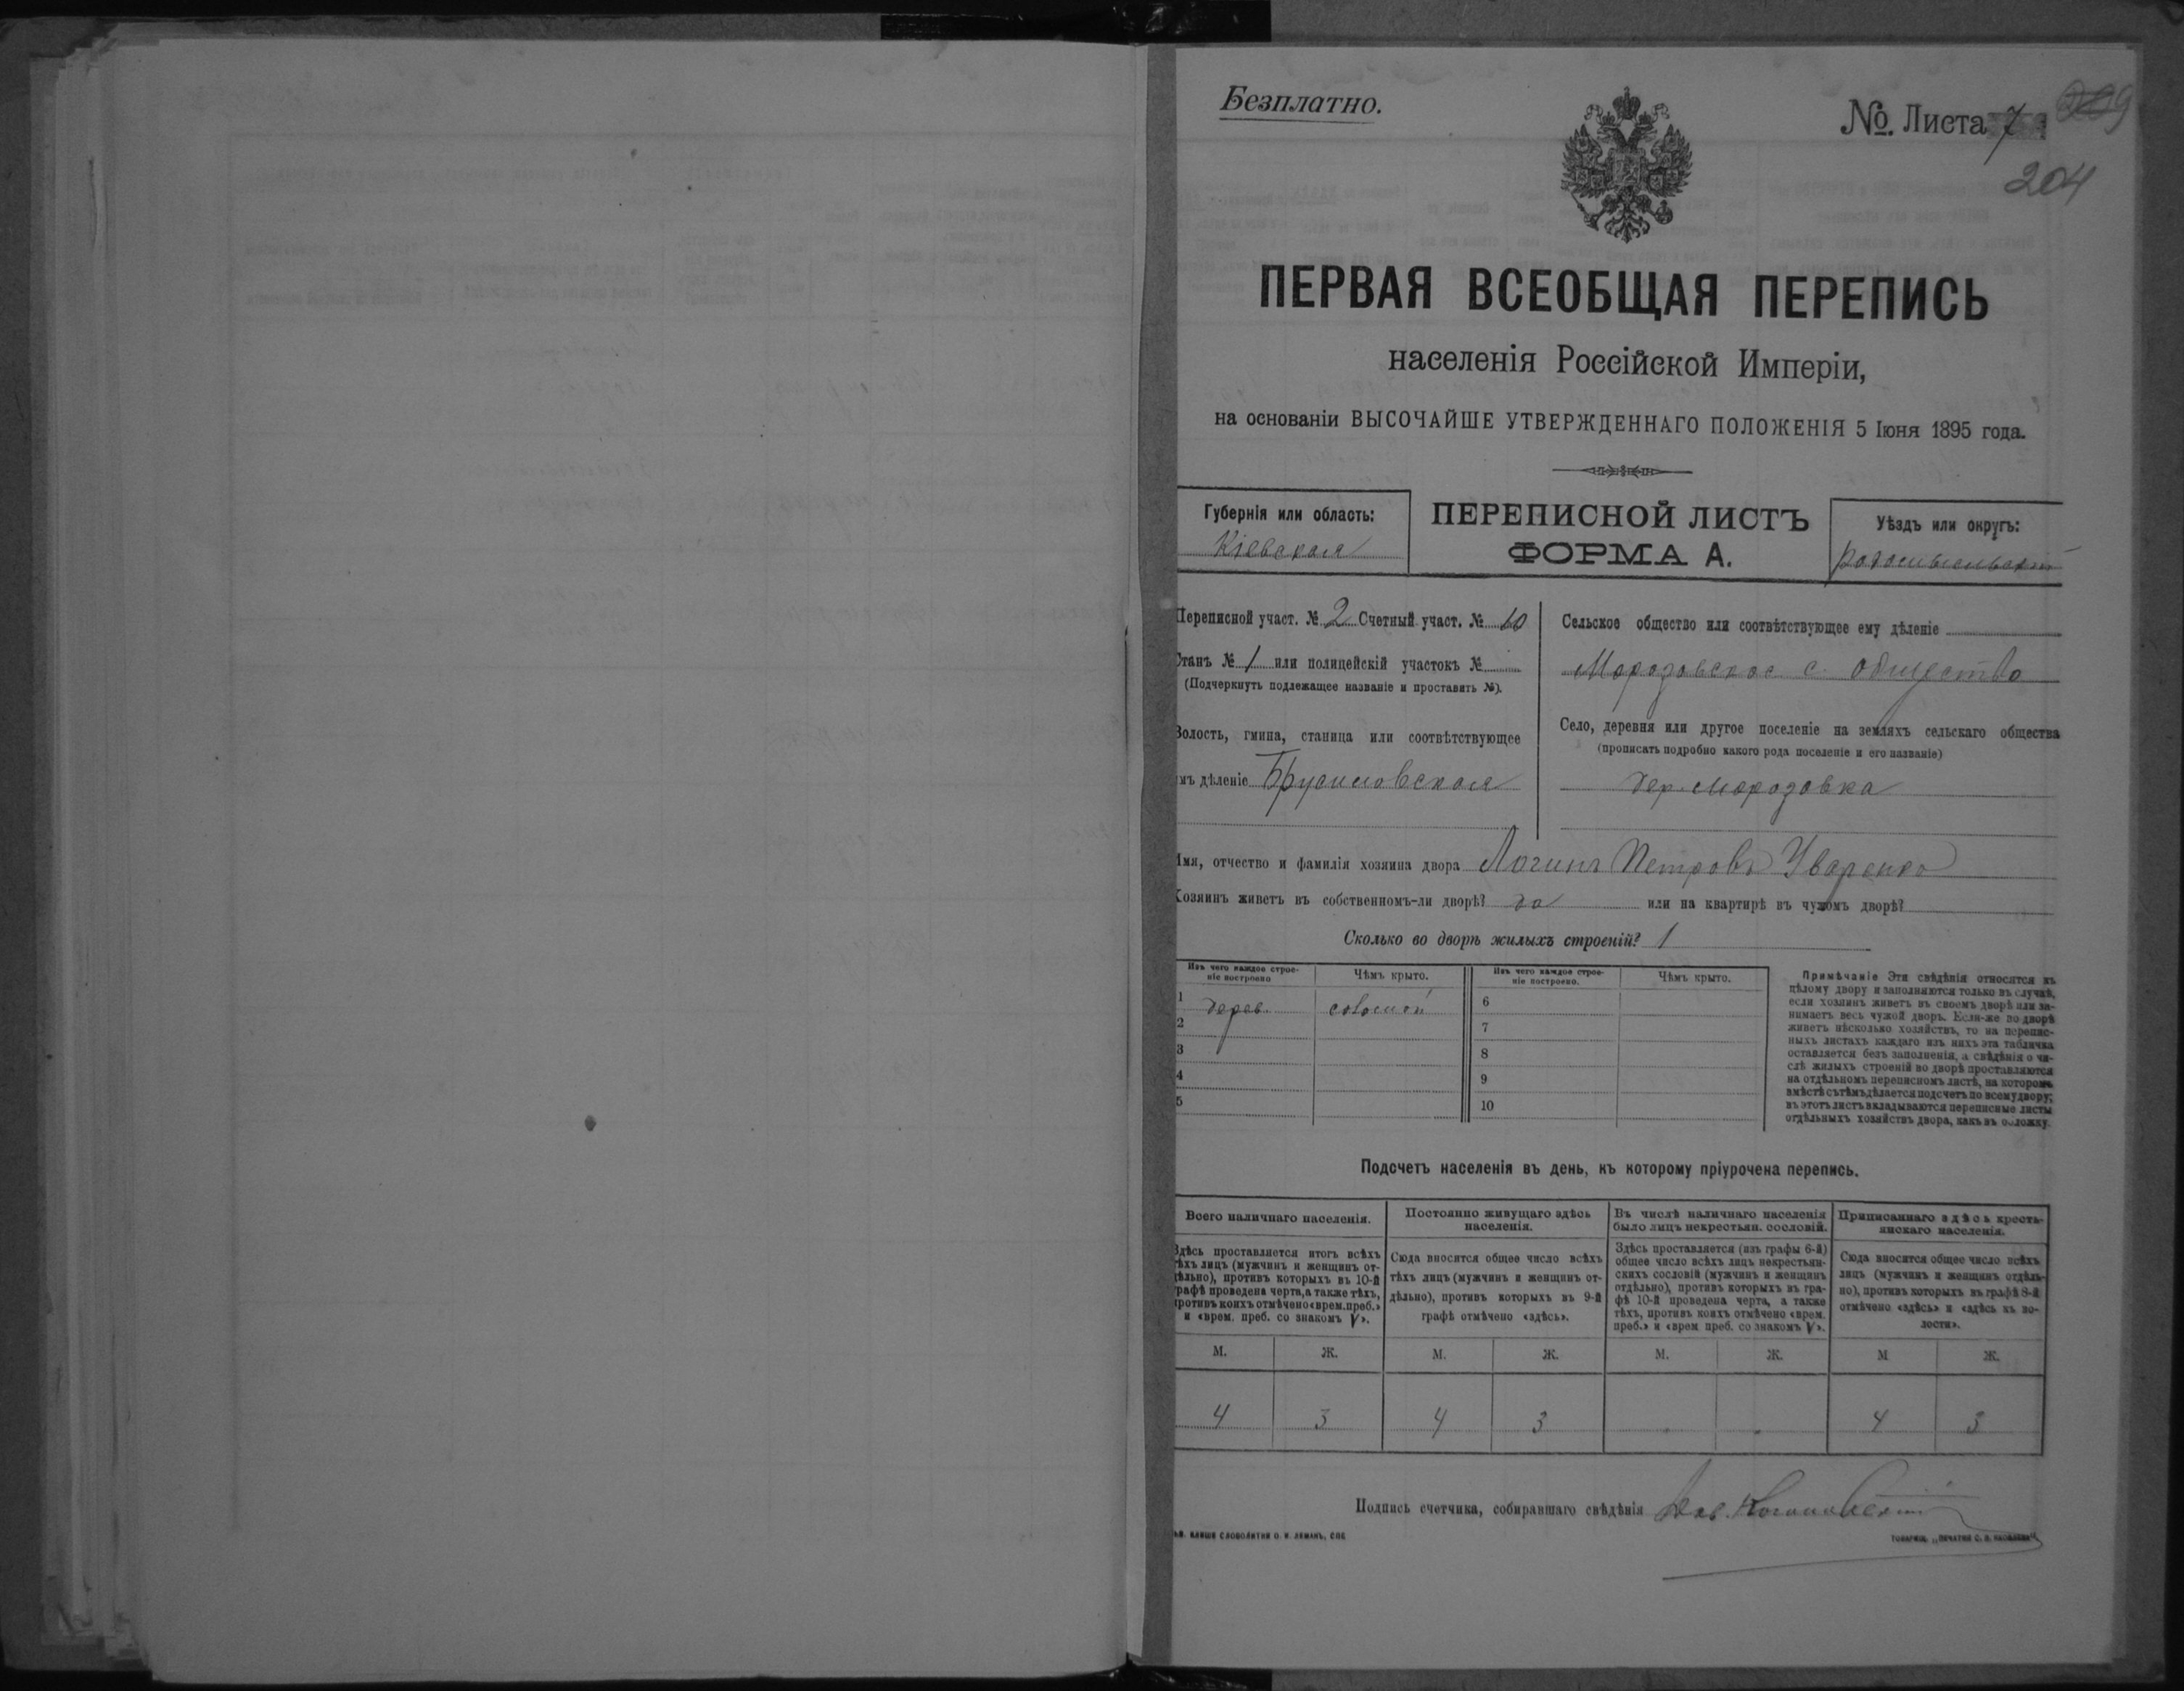 Безплатно.
№. Листа 7
204
ПЕРВАЯ ВСЕОБЩАЯ ПЕРЕПИСЬ
населенія Россійской Имперіи,
на основаніи ВЫСОЧАЙШЕ УТВЕРЖДЕННАГО ПОЛОЖЕНІЯ 5 Іюня 1895 года.
Губернія или область:
Кіевская
ПЕРЕПИСНОЙ ЛИСТЪ
ФОРМА А.
Уѣздъ или округъ:
Переписной участ. № 2 Счетный участ. № 10
Станъ № 1 или полицейскій участокъ №
(Подчеркнуть подлежащее названіе и проставить №).
Волость, гмина, станица или соотвѣтствующее
имъ дѣленіе Брусиловская
Сельское общество или соотвѣтствующее ему дѣленіе
Морозовское с. общество
Село, деревня или другое поселеніе на земляхъ сельскаго общества
(прописать подробно какого рода поселеніе и его названіе)
дер. Морозовка
Имя, отчество и фамилія хозяина двора Логинъ Петровъ Уваренко
Хозяинъ живетъ въ собственномъ-ли дворѣ? да или на квартирѣ въ чужомъ дворѣ?
Сколько во дворѣ жилыхъ строеній? 1
Изъ чего каждое строе-
ніе построено
Чѣмъ крыто.
Изъ чего каждое строе-
ніе построено.
Чѣмъ крыто.
1 дерев. соломой 6
2 7
3 8
4 9
5 10
Примѣчаніе Эти свѣдѣнія относятся къ
цѣлому двору и заполняются только въ случаѣ,
если хозяинъ живетъ въ своемъ дворѣ или за-
нимаетъ весь чужой дворъ. Если-же во дворѣ
живетъ нѣсколько хозяйствъ, то на перепис-
ныхъ листахъ каждаго изъ нихъ эта табличка
оставляется безъ заполненія, а свѣдѣнія о чи-
слѣ жилыхъ строеній во дворѣ проставляются
на отдѣльномъ переписномъ листѣ, на которомъ
вмѣстѣ съ тѣмъ дѣлается подсчетъ по всему двору;
въ этотъ листъ вкладываются переписные листы
отдѣльныхъ хозяйствъ двора, какъ въ обложку.
Подсчетъ населенія въ день, къ которому пріурочена перепись.
Всего наличнаго населенія.
Здѣсь проставляется итогъ всѣхъ
тѣхъ лицъ (мужчинъ и женщинъ от-
дѣльно), противъ которыхъ въ 10-й
графѣ проведена черта, а также тѣхъ,
противъ коихъ отмѣчено «врем. преб.»
и «врем. преб. со знакомъ V».
Постоянно живущаго здѣсь
населенія.
Сюда вносится общее число всѣхъ
тѣхъ лицъ (мужчинъ и женщинъ от-
дѣльно), противъ которыхъ въ 9-й
графѣ отмѣчено «здѣсь».
Въ числѣ наличнаго населенія
было лицъ некрестьян. сословій.
Здѣсь проставляется (изъ графы 6-й)
общее число всѣхъ лицъ некрестьян-
скихъ сословій (мужчинъ и женщинъ
отдѣльно), противъ которыхъ въ гра-
фѣ 10-й проведена черта, а также
тѣхъ, противъ коихъ отмѣчено «врем.
преб.» и «врем преб. со знакомъ V».
Приписаннаго здѣсь кресть-
янскаго населенія.
Сюда вносится общее число всѣхъ
лицъ (мужчинъ и женщинъ отдѣль-
но), противъ которыхъ въ графѣ 8-й
отмѣчено «здѣсь» и «здѣсь къ во-
лости».
М. Ж. М. Ж. М. Ж. М Ж.
4 3 4 3 4 3
Подпись счетчика, собиравшаго свѣдѣнія